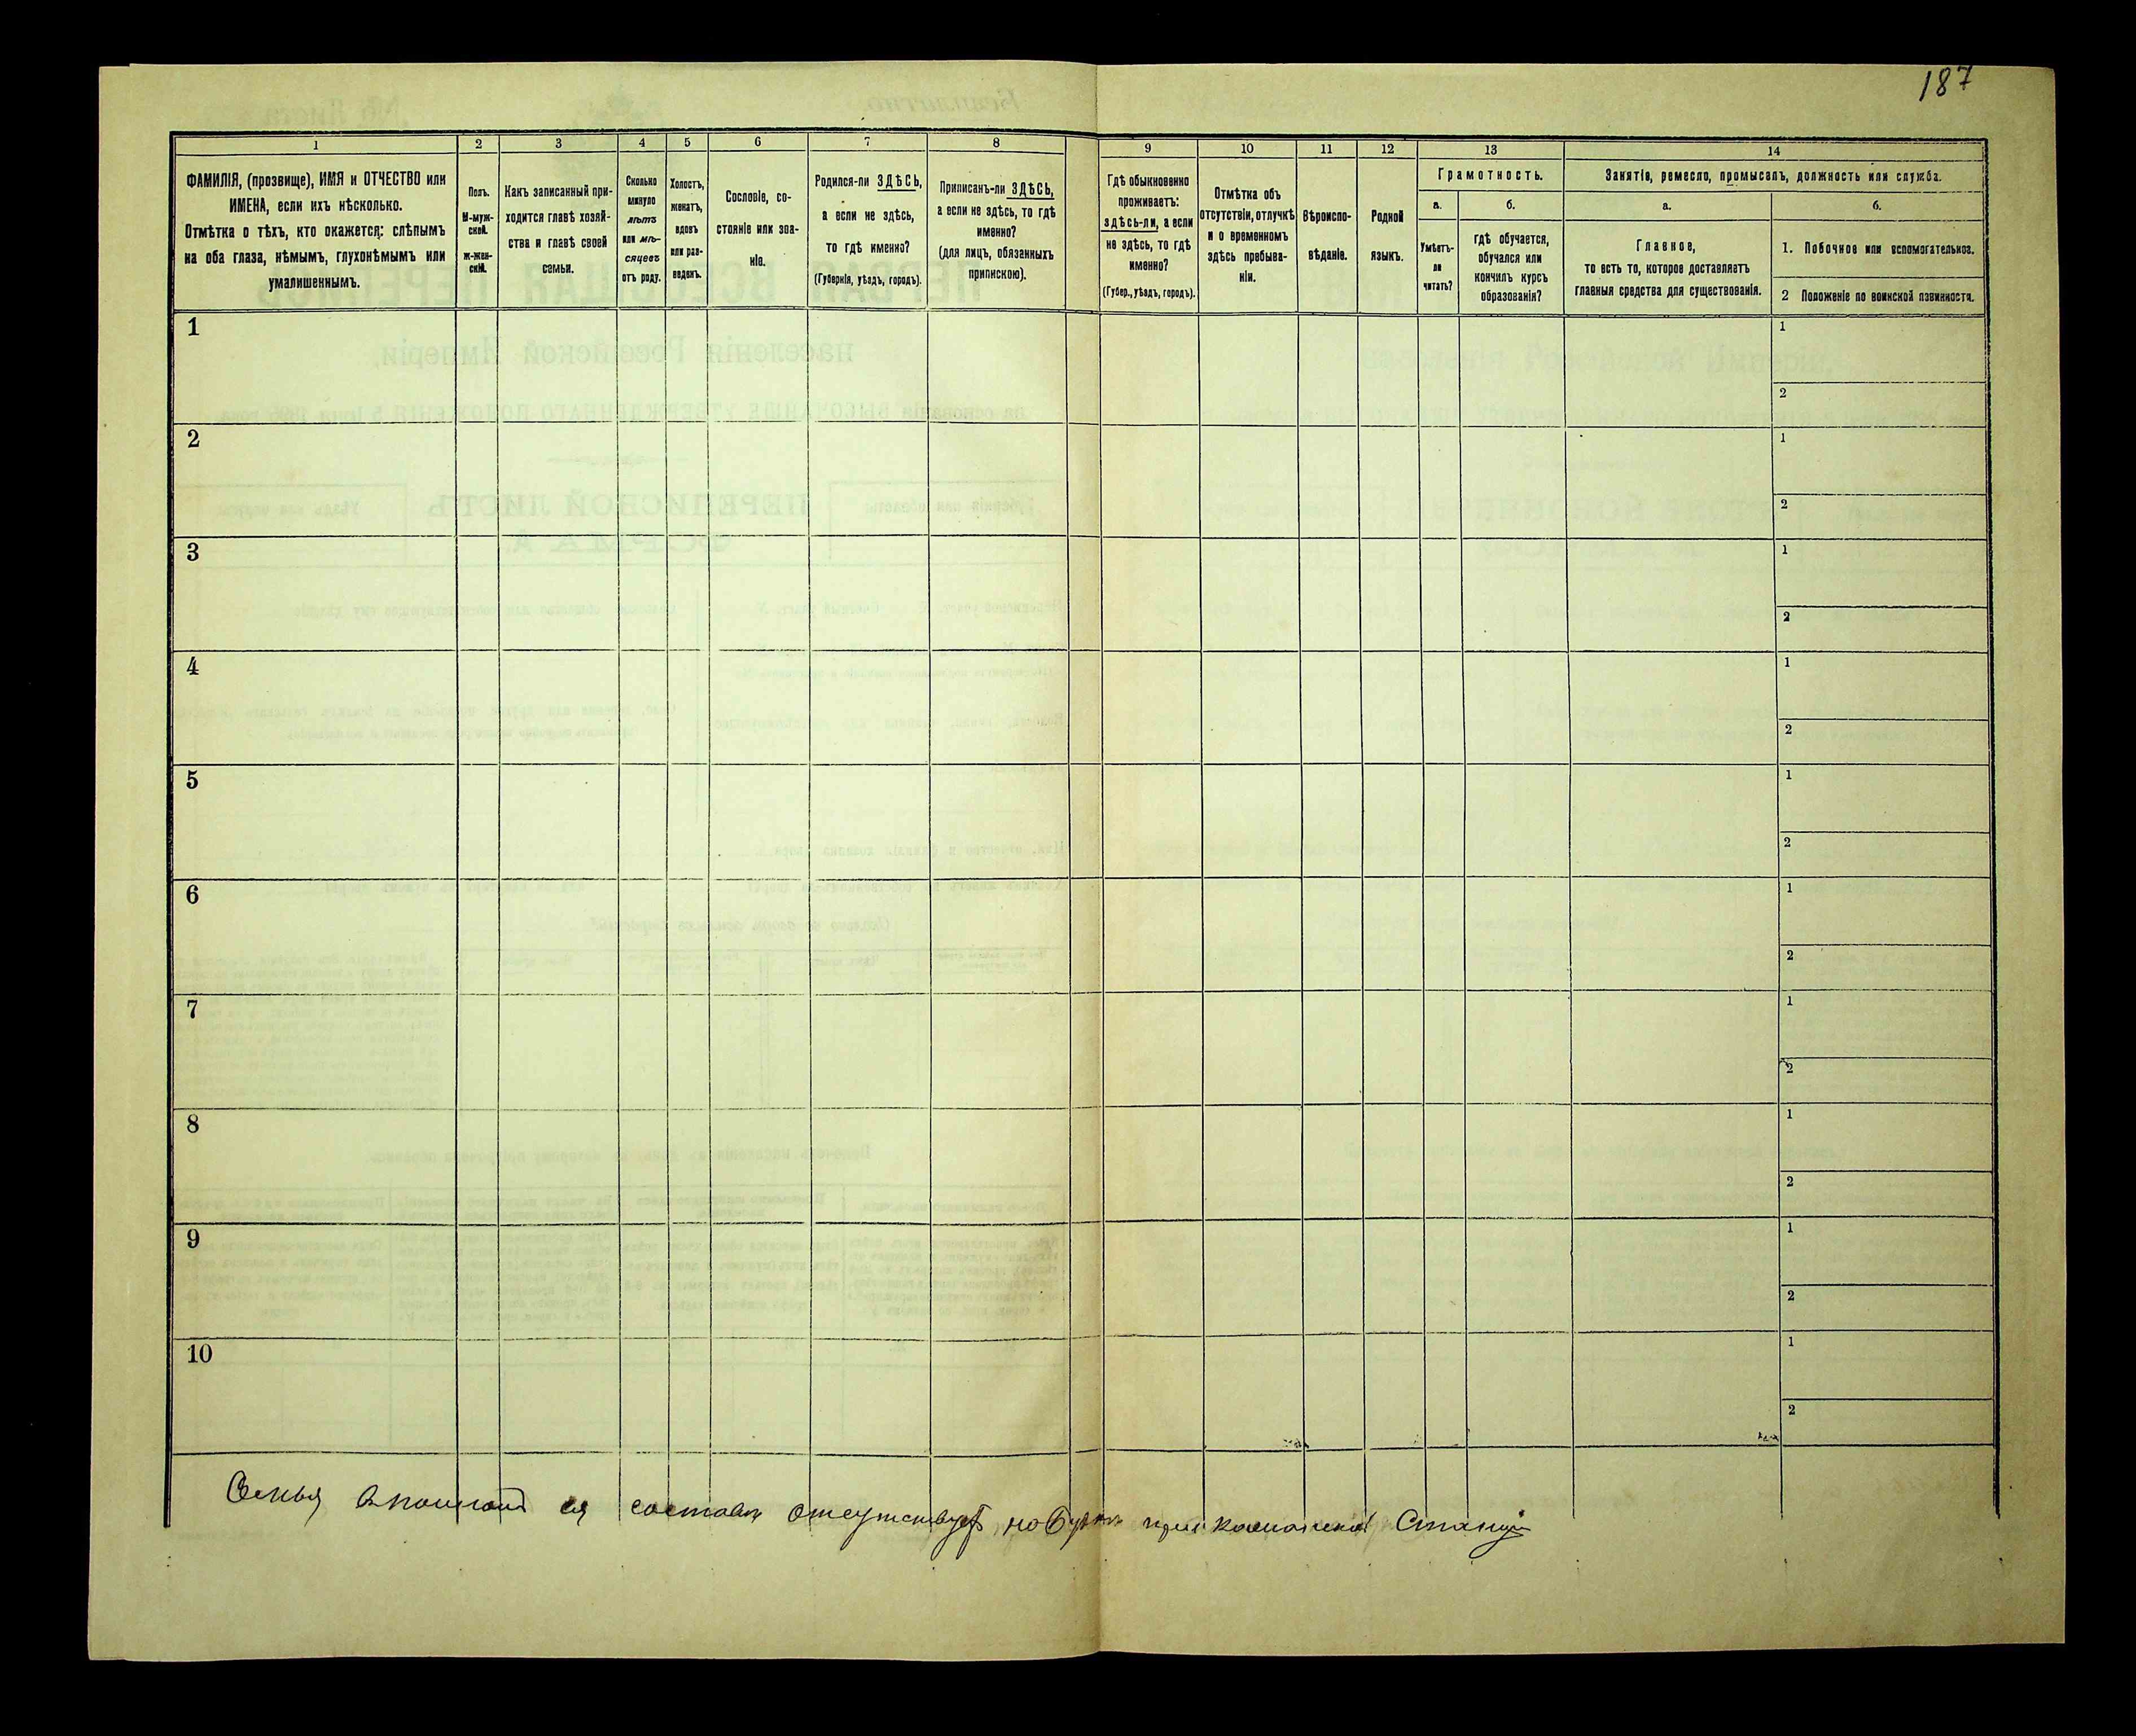 187
1
2
3
4
5
6
7
8
9
10
11
12
13
14
ФАМИЛІЯ, (прозвище), ИМЯ и ОТЧЕСТВО или
ИМЕНА, если ихъ нѣсколько.
Отмѣтка о тѣхъ, кто окажется: слѣпымъ
на оба глаза, нѣмымъ, глухонѣмымъ или
умалишеннымъ.
Полъ.
М-муж-
ской.
ж-жен-
скій.
Какъ записанный при-
ходится главѣ хозяй-
ства и главѣ своей
семьи.
Сколько
минуло
лѣтъ
или мѣ-
сяцевъ
отъ роду.
Холостъ,
женатъ,
вдовъ
или раз-
веденъ.
Сословіе, со-
стояніе или зва-
ніе.
Родился-ли ЗДѢСЬ,
а если не здѣсь,
то гдѣ именно?
(Губернія, уѣздъ, городъ).
Приписанъ-ли ЗДѢСЬ,
а если не здѣсь, то гдѣ
именно?
(для лицъ, обязанныхъ
припискою).
Гдѣ обыкновенно
проживаетъ:
здѣсь-ли, а если
не здѣсь, то гдѣ
именно?
(Губер., уѣздъ, городъ).
Отмѣтка объ
отсутствіи, отлучкѣ
и о временномъ
здѣсь пребыва-
ніи.
Вѣроиспо-
вѣданіе.
Родной
языкъ.
Грамотность.
а.
Умѣетъ-
ли
читать?
б.
гдѣ обучается,
обучался или
кончилъ курсъ
образованія?
Занятіе, ремесло, промыселъ, должность или служба.
а.
Главное,
то есть то, которое доставляетъ
главныя средства для существованія.
б.
1. Побочное или вспомогательное.
2 Положеніе по воинской повинности.
1
1
2
2
1
2
3
1
2
4
1
2
5
1
2
6
1
2
7
1
2
8
1
2
9
1
2
10
1
2
Семья
отсутствуетъ